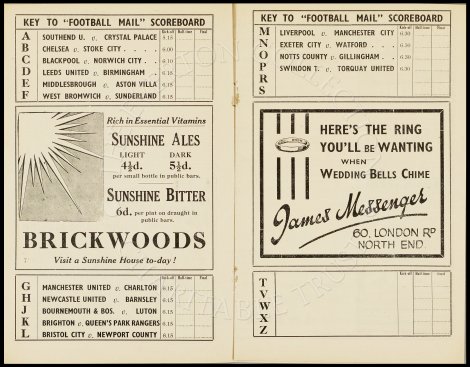 KEY TO "FOOTBALL MAIL" SCOREBOARD
Kick-off Half-time Final
A SOUTHEND U. v. CRYSTAL PALACE 5.15
B CHELSEA v. STOKE CITY 6.30
C BLACKPOOL v. NORWICH CITY 6.10
D LEEDS UNITED v. BIRMINGHAM 6.15
E MIDDLESBROUGH v. ASTON VILLA 6.15
F WEST BROMWICH v. SUNDERLAND 6.15
Rich in Essential Vitamins
SUNSHINE ALES
LIGHT DARK
4½d. 5½d.
per small bottle in public bars.
SUNSHINE BITTER
6d. per pint on draught in
public bars.
BRICKWOODS
7 Visit a Sunshine House to-day!
Kick-off Half-time Final
G MANCHESTER UNITED v. CHARLTON 6.15
H NEWCASTLE UNITED v. BARNSLEY 6.15
J BOURNEMOUTH & BOS. v. LUTON 6.15
K BRIGHTON v. QUEEN'S PARK RANGERS 6.15
L BRISTOL CITY v. NEWPORT COUNTY 6.15
KEY TO "FOOTBALL MAIL" SCOREBOARD
Kick-off Half-time Final
M LIVERPOOL v. MANCHESTER CITY 6.30
N EXETER CITY v. WATFORD 6.30
O NOTTS COUNTY v. GILLINGHAM 6.30
P SWINDON T. v. TORQUAY UNITED 6.30
R
S
HERE'S THE RING
YOU'LL BE WANTING
WHEN
WEDDING BELLS CHIME
James Messenger
60, LONDON RD
NORTH END.
Kick-off Half-time Final
T
V
W
X
Z